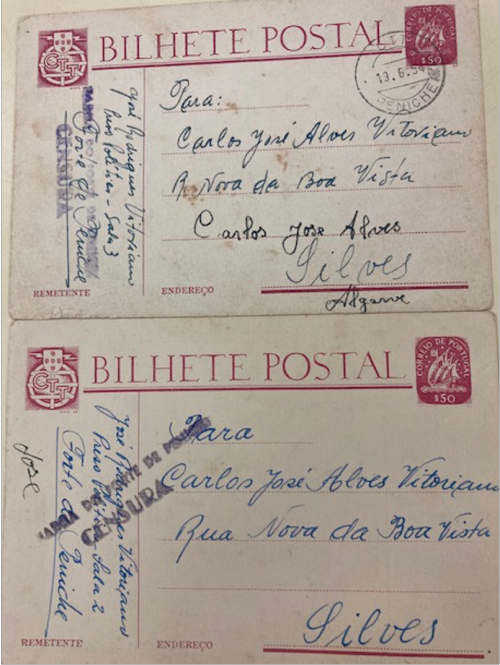 CTT
BILHETE POSTAL
CORREIO DE PORTUGAL
$50
19.6.54
PENICHE
José Rodrigues Vitoriano
Preso Político - Sala 3
Forte de Peniche
CENSURA
REMETENTE
Para:
Carlos José Alves Vitoriano
R Nova da Boa Vista
Carlos Jose Alves
Silves
Algarve
ENDEREÇO
CTT
BILHETE POSTAL
CORREIO DE PORTUGAL
$50
José Rodrigues Vitoriano
Preso Político - Sala 2
Forte de Peniche
Jose
FORTE DE PENICHE
CENSURA
REMETENTE
Para
Carlos José Alves Vitoriano
Rua Nova da Boa Vista
Silves
ENDEREÇO